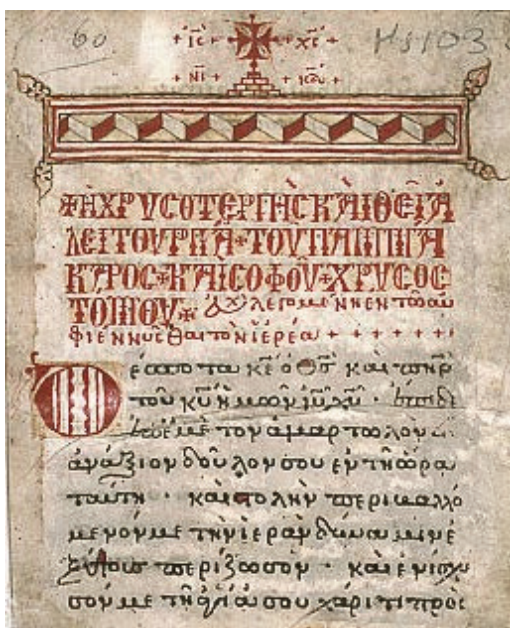 60
ΙC ΧC
ΝΙ ΚΑ
+ἩΧΡΥCΟΤΕΡΠῊC ΚΑῚ ΘΕΊΑ
ΛΕΙΤΟΥΡΓΊΑ + ΤΟΥ ΠΑΜΜΆ
ΚΑΡΟC + ΚΑῚ CΟΦΟΥ͂ + ΧΡΥCΟC
ΤΌΜΟΥ + εὐχὴ λεγομένη ἐν τῶ ἀμ
φιέννυσθαι τὸν ἱερέα + + + + + +
Δέσποτα κ̅ε̅ ὁ θ̅ς̅ καὶ π̅η̅ρ̅
τοῦ κ̅υ̅ ἡμῶν ι̅υ̅ χ̅υ̅ · ἔπιδε
ἐπ' ἐμὲ τὸν ἁμαρτωλὸν
ἀνάξιον δοῦλον σου ἐν τῆ ὥρα
ταύτη · καὶ στολὴν περιβαλλό
μενον με τὴν ἱερὰν δύναμιν ἐ
ξ ὕψους περίζωσον · καὶ ἐνίσχυ
σόν με τῆ ἁγία σου χάριτι πρὸς